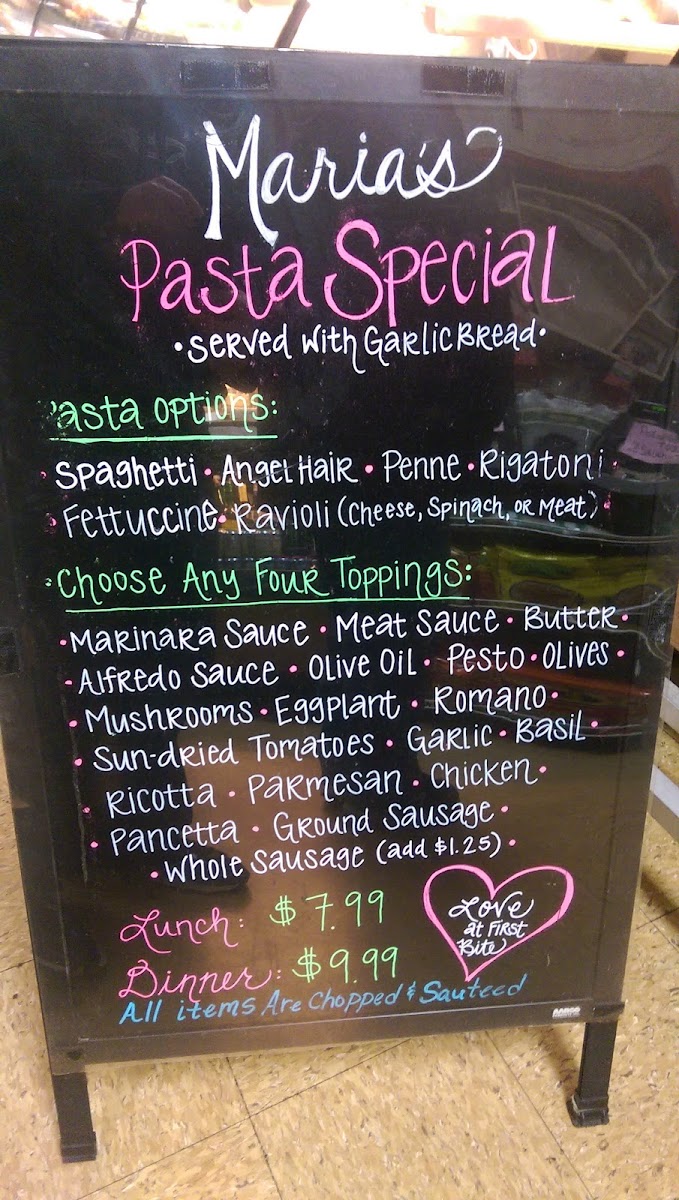 Maria's
Pasta Special
• Served with Garlic Bread •
Pasta Options:
• Spaghetti • Angel Hair • Penne • Rigatoni •
• Fettuccine • Ravioli (Cheese, Spinach, or Meat) •
• Choose Any Four Toppings:
• Marinara Sauce • Meat Sauce • Butter •
• Alfredo Sauce • Olive Oil • Pesto • Olives •
• Mushrooms • Eggplant • Romano •
• Sun-dried Tomatoes • Garlic • Basil •
Ricotta • Parmesan • Chicken •
• Pancetta • Ground Sausage •
• Whole Sausage (add $1.25) •
Lunch: $7.99
Dinner: $9.99
Love
at First
Bite
All items Are Chopped & Sauteed
AARCO